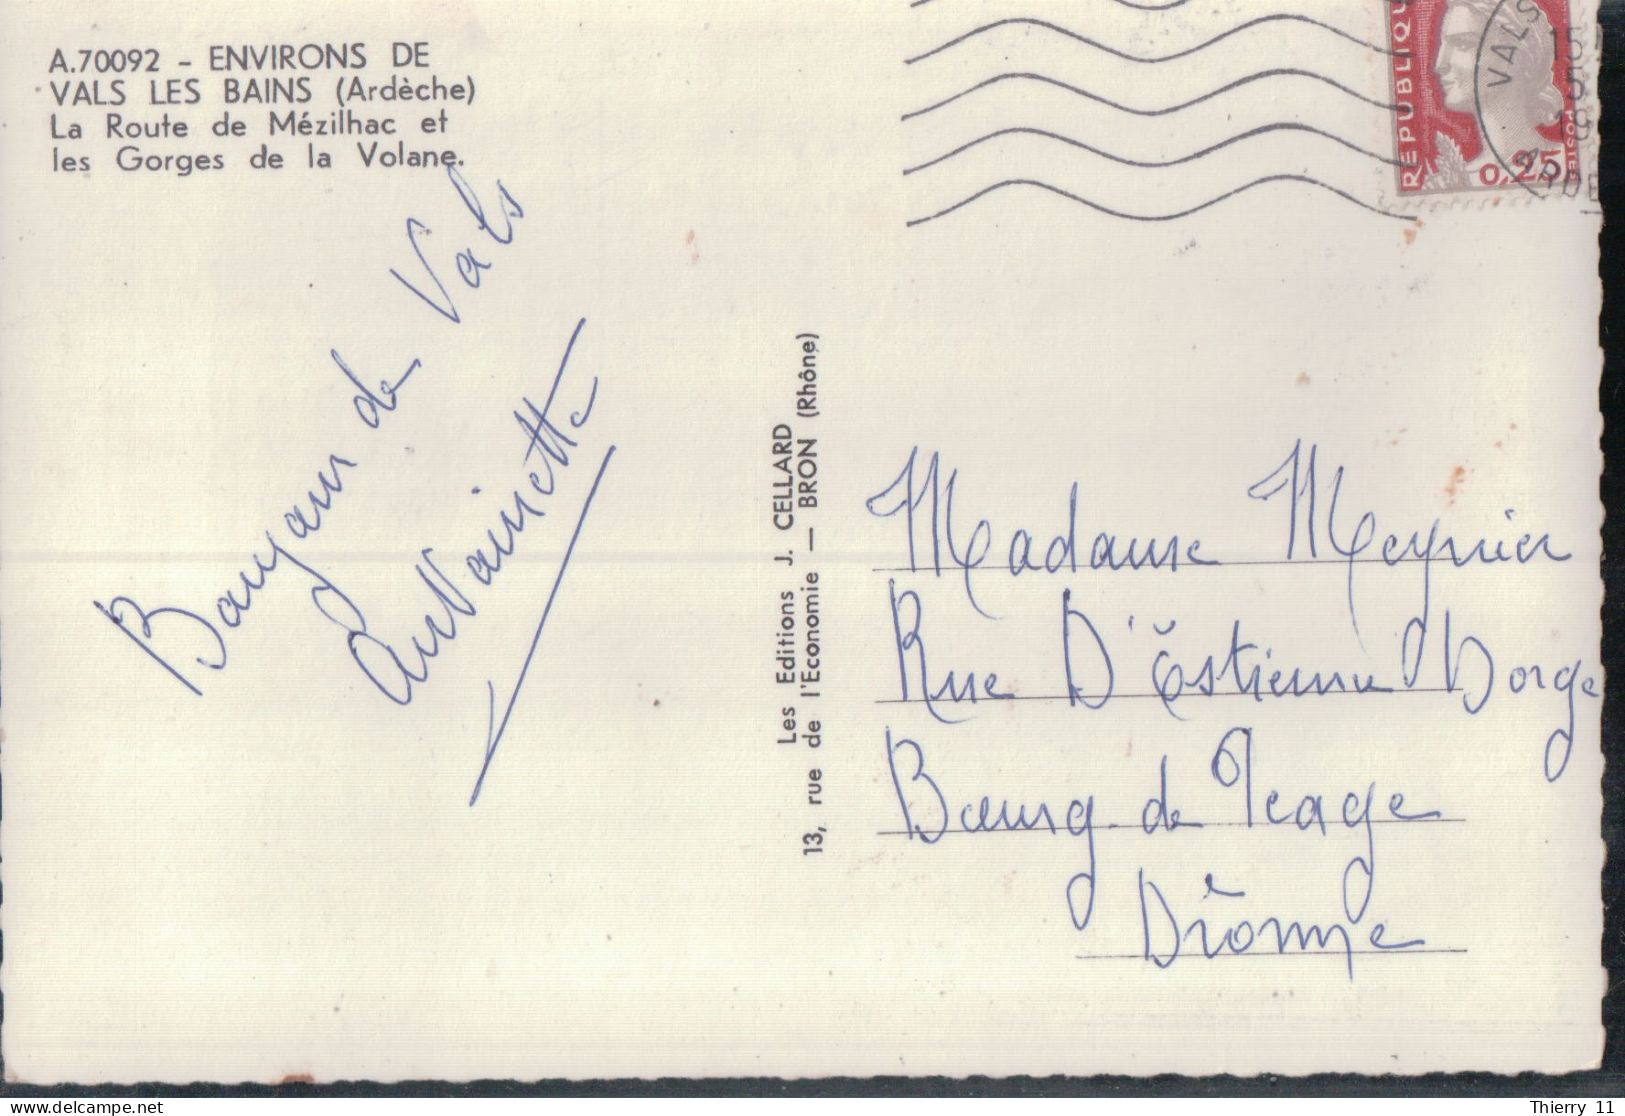 A.70092 - ENVIRONS DE
VALS LES BAINS (Ardèche)
La Route de Mézilhac et
les Gorges de la Volane.
de Vals
Les Editions J. CELLARD
13, rue de l'Economie — BRON (Rhône)
REPUBLIQUE
0,25
POSTES
VALS
15
18
Madame Meynier
Rue D'Estienne Dorge
Bourg-de Peage
Drôme
Thierry 11